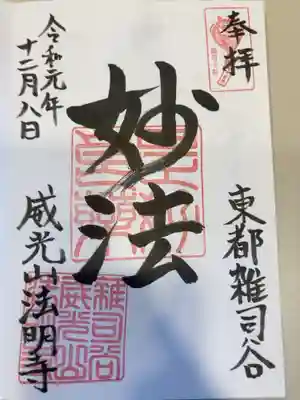 奉拝
東都雑司谷
妙法
令和元年
十二月八日
威光山法明寺
雑司谷
威光山